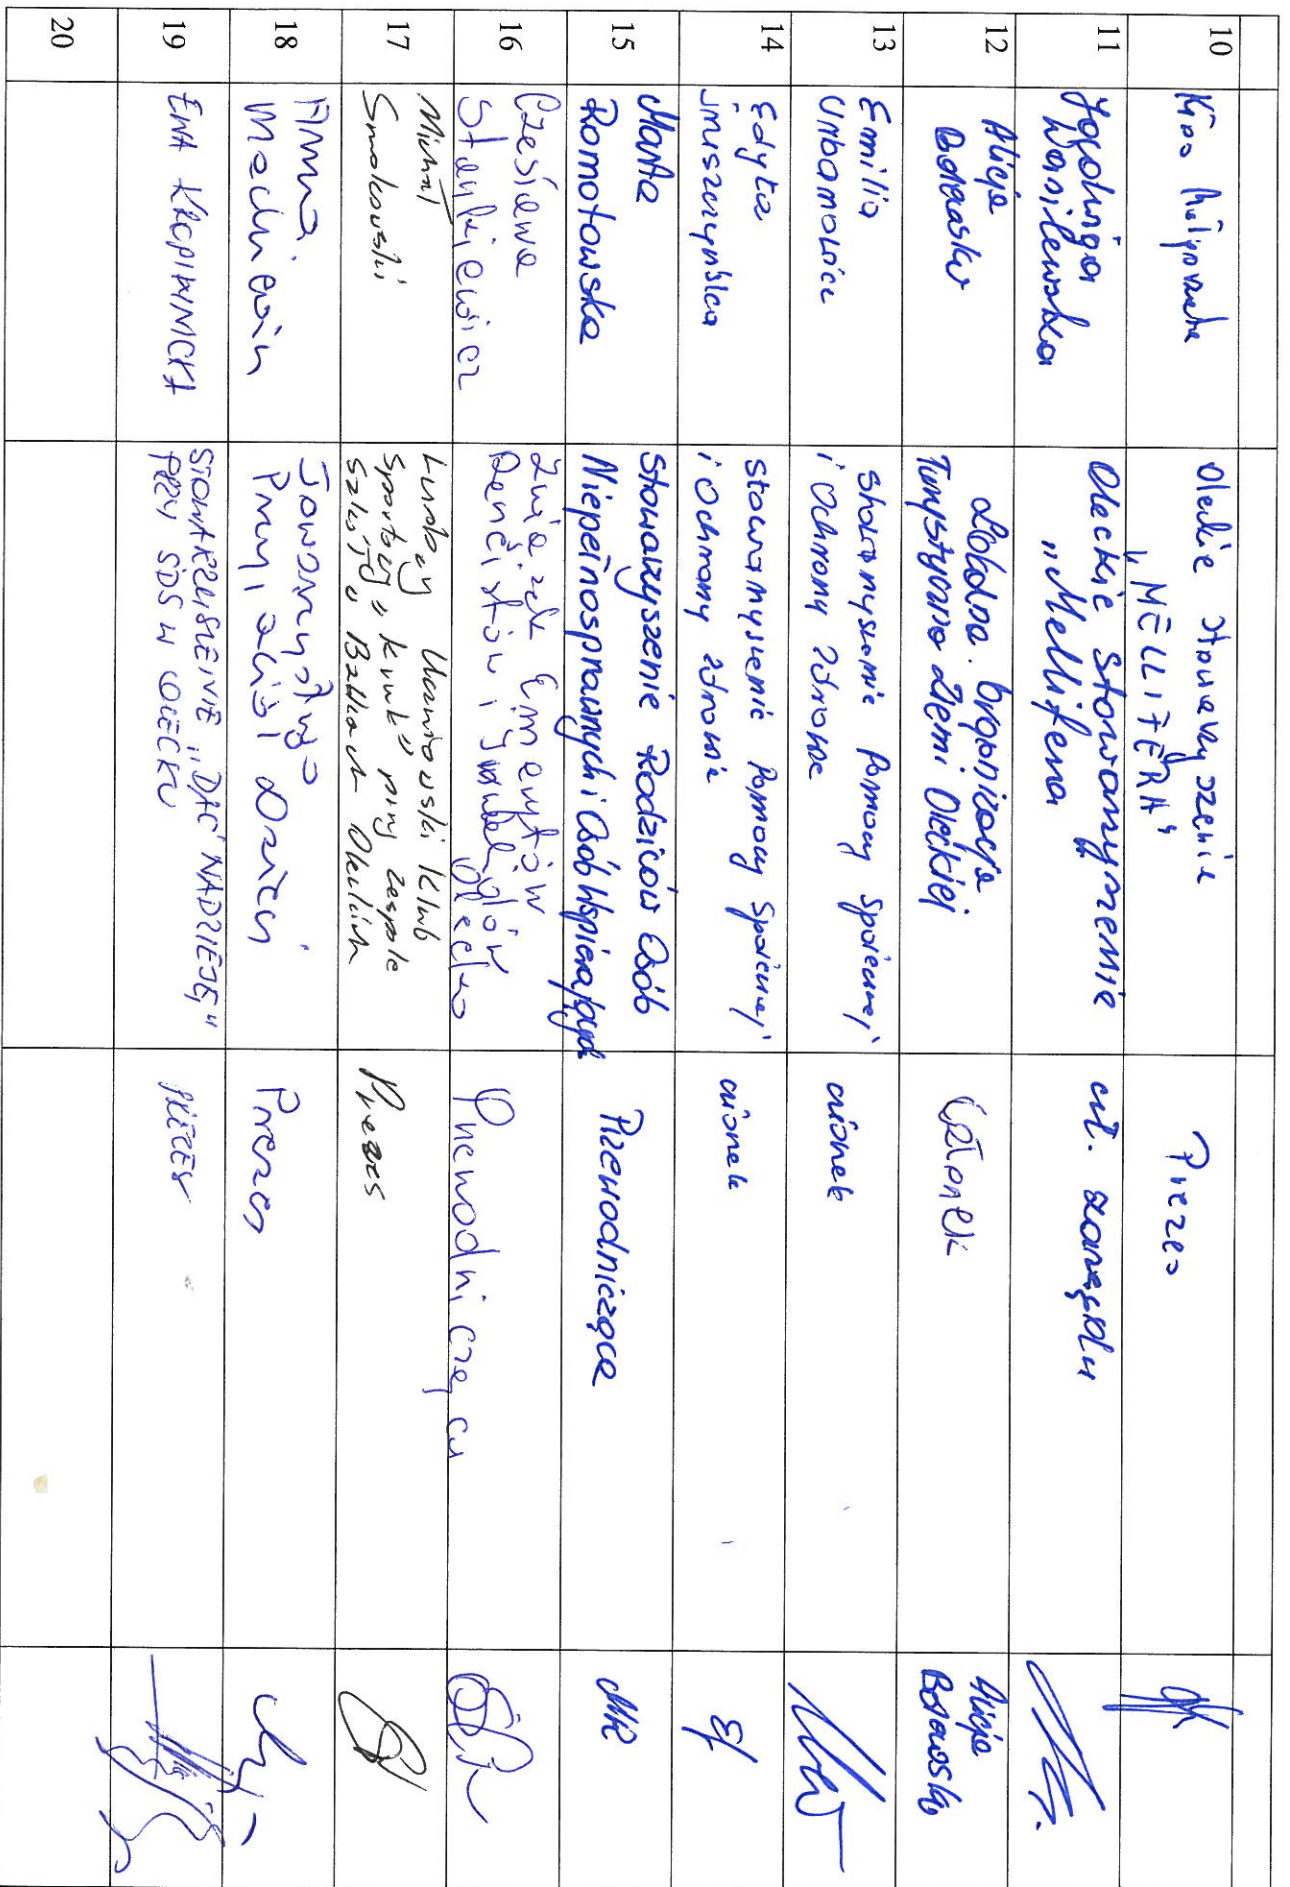 10
Oleckie Stowarzyszenie
„MELLIFERA"
Prezes
11
Jadwiga
Wasilewska
Oleckie Stowarzyszenie
„Mellifera
czł. zarządu
12
Alicja
Borawska
Lokalna Organizacja
Turystyczna Ziemi Oleckiej
Członek
Alicja
Borawska
13
Emilia
Urbanowicz
Stowarzyszenie Pomocy Społecznej
i Ochrony Zdrowia
członek
14
Edyta
Stowarzyszenie Pomocy Społecznej
i Ochrony Zdrowia
członek
15
Marta
Romotowska
Stowarzyszenie Rodziców Osób
Niepełnosprawnych i Osób Wspierających
Przewodnicząca
MR
16
Czesława
Stankiewicz
Związek Emerytów
Rencistów i Inwalidów
Olecko
Przewodniczący
17
Michał
Smokowski
Ludowy Uczniowski Klub
Sportowy przy zespole
szkół w Babkach Oleckich
Prezes
18
Anna
Towarzystwo
Przyjaciół Dzieci
Prezes
19
EWA KROPIWNICKA
STOWARZYSZENIE „DAĆ NADZIEJĘ"
PRZY ŚDS W OLECKU
PREZES
20